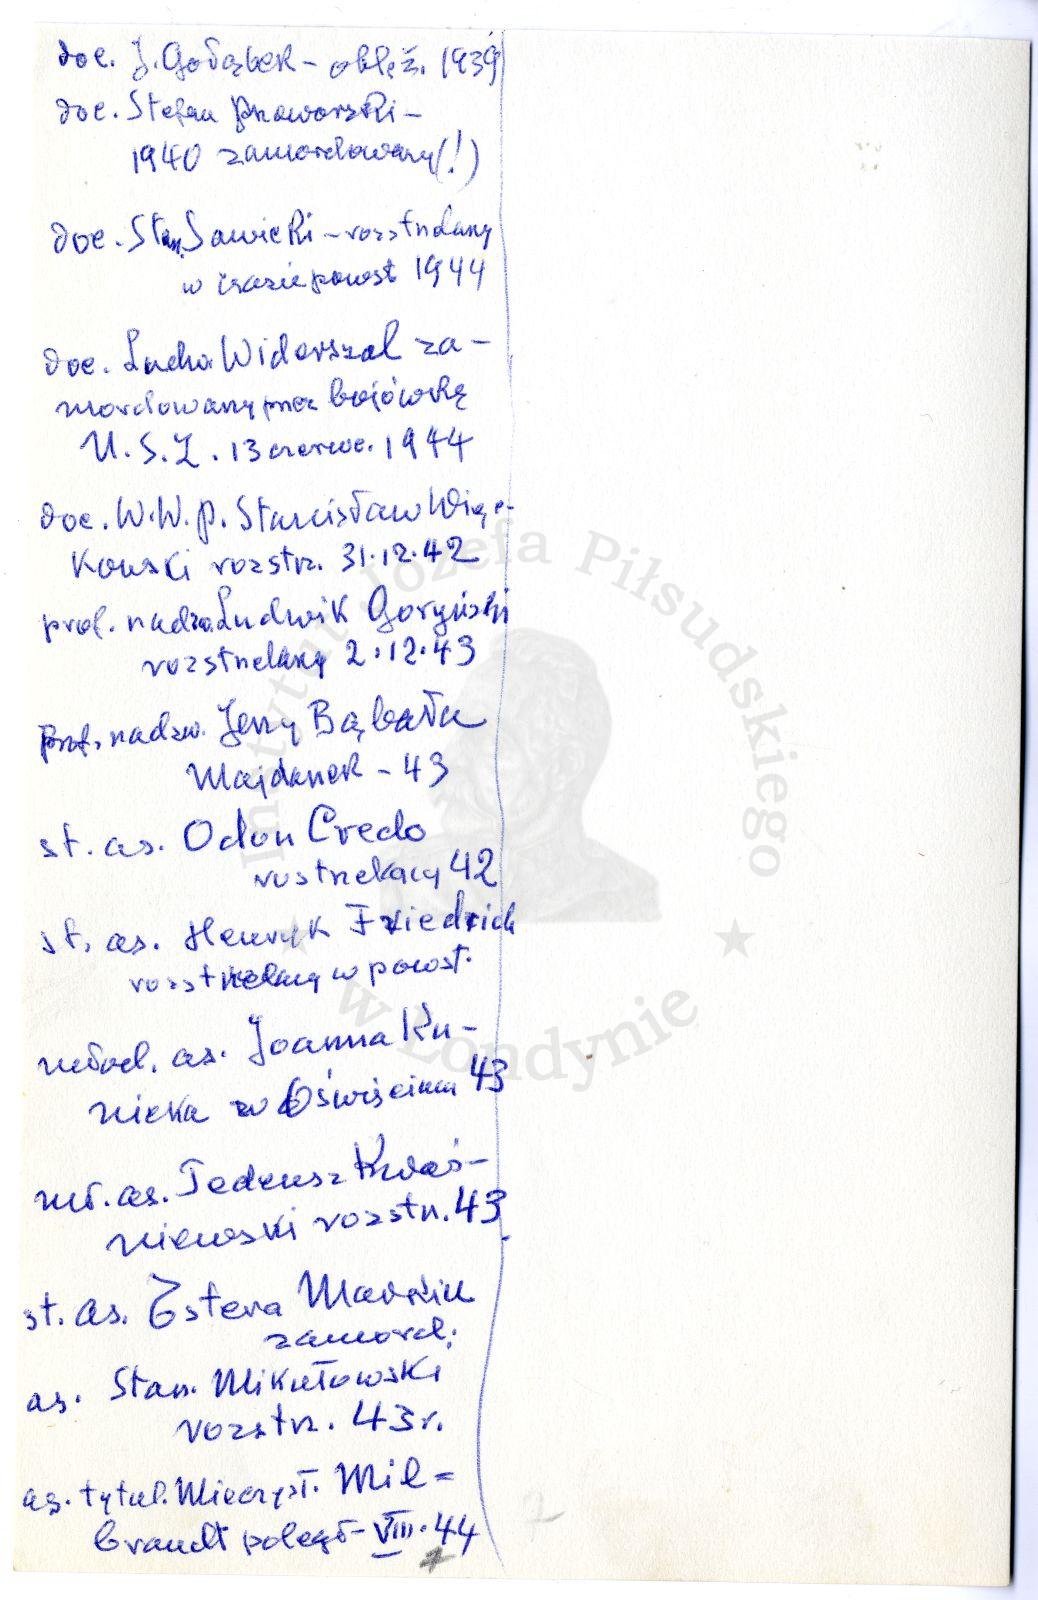 doc. J. Gołąbek – oblęż. 1939
doc. Stefan Jaworski –
1940 zamordowany(!)
doc. Stan. Sawicki – rozstrzelany
w czasie powst 1944
doc. Ludw. Widerszal za-
mordowany przez bojówkę
N.S.Z. 13 czerwc. 1944
doc. W.W.P. Stanisław Więc-
kowski rozstrz. 31.12.42
prof. nadzw. Ludwik Goryński
rozstrzelany 2.12.43
prof. nadzw. Jerzy Bąbała
Majdanek – 43
st. as. Odon Credo
rozstrzelany 42
st. as. Henryk Friedrich
rozstrzelany w powst.
młod. as. Joanna Ku-
nicka w Oświęcimiu 43
mł. as. Tadeusz Kwaś-
niewski rozstrz. 43
st. as. Estera
zamord.
as. Stan. Mikułowski
rozstrz. 43 r.
as. tytul. Mieczysł. Mil=
brandt poległ – VIII.44
2
Instytut Józefa Piłsudskiego
w Londynie